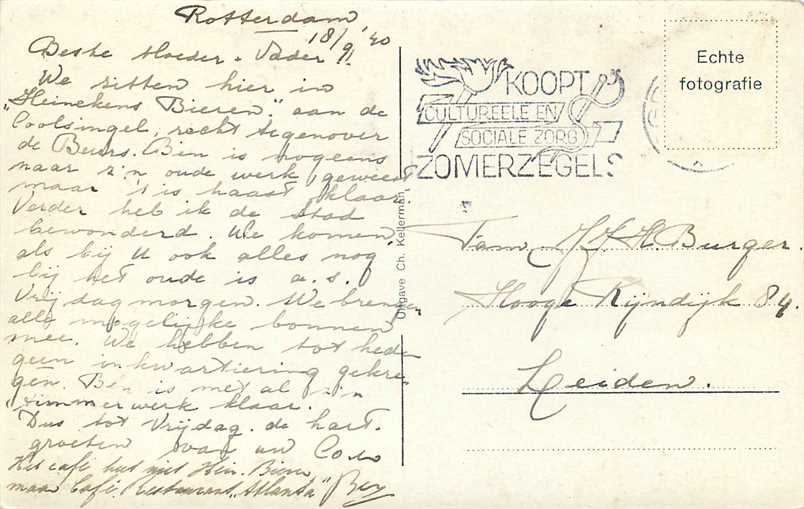 Rotterdam
18/9 '40
Beste Moeder + Vader,
We zitten hier in
„Heinekens Bieren" aan de
Coolsingel, recht tegenover
de Beurs. Ben is nog eens
naar z'n oude werk geweest
maar 't is haast klaar.
Verder heb ik de stad
bewonderd. We komen,
als bij U ook alles nog
bij het oude is a.s.
Vrijdagmorgen. We brengen
alle mogelijke bonnen
mee. We hebben tot heden
geen inkwartiering gekre-
gen. Ben is met al z'n
timmerwerk klaar.
Dus tot Vrijdag. de hart.
groeten van uw
Het café niet Hein. Bieren
maar Café Restaurant „Atlanta"
Uitgave Ch. Kellerman
KOOPT
CULTUREELE EN
SOCIALE ZORG
ZOMERZEGELS
Echte
fotografie
Fam. J. J. H. Burger.
Hooge Rijndijk 84.
Leiden.